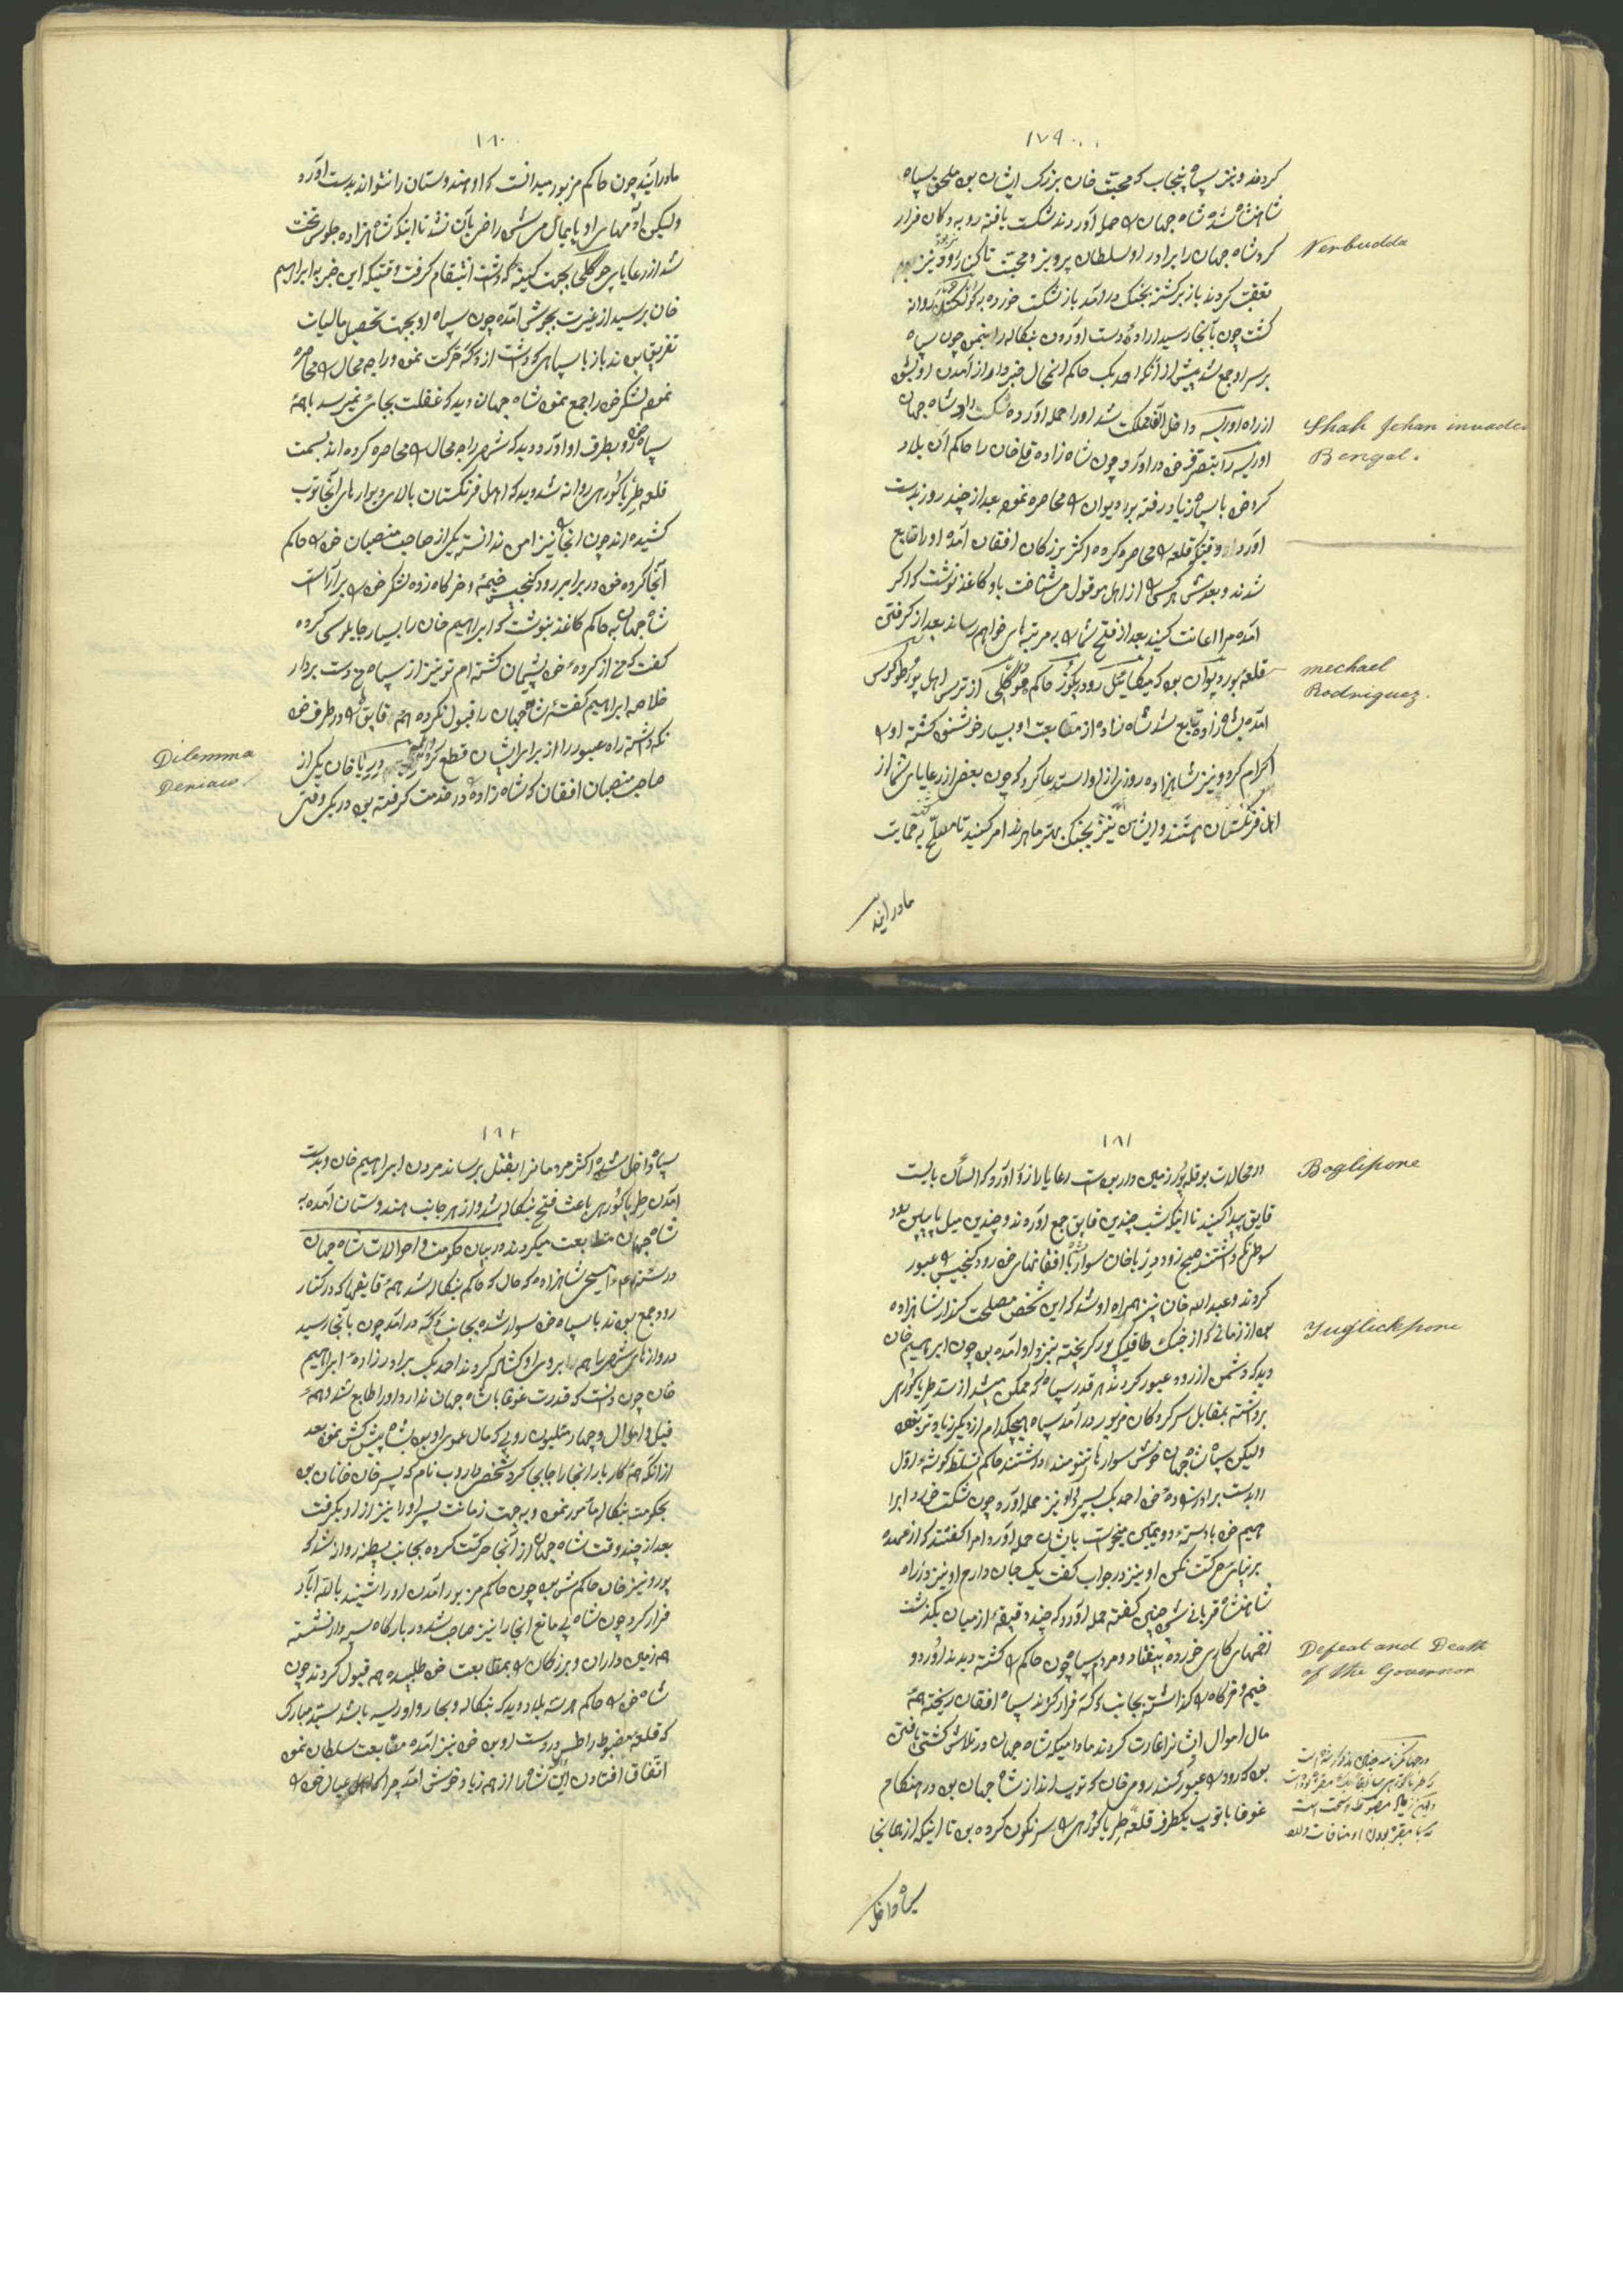 ١٧٩
کردند و نیز سپاه پنجاب که محبت خان بزرک ایشان بود ملحق بسپاه
شاهنشاه شده شاه جهان را حمله آوردند شکست یافته رو به دکان فرار
کرد شاه جهان را برادر او سلطان پرویز و محبت تا کنار رود نیز
Nerbudda
تعقب کردند باز برکشته بجنک درآمد باز شکست خورده به کولکنده روانه
کشت چون بآنجا رسید اراده دست آوردن بنکاله را بنمود چون سپاه
بر سر او جمع شد پیش از آنکه احمد بک حاکم انمحال خبردار از آمدن او بشود
از راه اوریسه داخل آنمملکت شد او را حمله آورده شکست داد شاه جهان
Shah Jehan invades
Bengal.
اوریسه را بتصرف خود درآورد چون شاه زاده قلی خان را حاکم آن بلاد
کرد خود با سپاه زیاد رفته بردیوان را محاصره نموده بعد از چند روز بدست
آورد وقتیکه قلعه را محاصره کرده اکثر بزرکان افقان آمده او را تابع
شدند و بعدش هر کسی را از اهل موقول می شناخت باو کاغذ نوشت که اکر
آمده مرا اعانت کنید بعد از فتح شما را به مرتبه های خواهم رساند بعد از کرفتن
قلعه بوردیوان بود که میکائیل رودریکوز حاکم هوکلی از ترس اهل پورطوکوس
mechael
Rodriguez.
آمده بشاهزاده تابع شد شاه زاده از متابعت او بسیار خوشنود کشته او را
اکرام کرد و نیز شاهزاده روزی از او استدعا کرد که چون بعضی از رعایای شما از
اهل فرنکستان هستند و ایشان نیز بجنک بهتر ماهرند امر کنید تا مصلح به حمایت
ماد رایند
١٨٠
ماد رایند چون حاکم مزبور میدانست که او هندوستان را نتواند بدست آورد
ولیکن آدمهای او پایمال می شدی راضی بآن نشد تا اینکه شاهزاده جلوس تخت
شد از رعایای هوکلی بجهت کینه که داشت انتقام کرفت وقتیکه این خبر به ابراهیم
خان برسید از غیرت بجوش آمده چون سپاه او بجهت تحصیل مالیات
تفریق بودند باز با سپاهی که داشت از دکه حرکت نمود و راجه محال را محاصره
نموده لشکر خود را جمع نمود شاه جهان دید که غفلت بجائی نمیرسد با همه
سپاه خود رو بطرف او آورد و دید که شهر راجه محال را محاصره کرده اند بسمت
قلعه طریاکوری روانه شد و دید که اهل فرنکستان بالای دیوارهای آنجا توپ
کشیده اند چون آنجا را نیز امن ندانسته یکی از صاحب منصبان خود را حاکم
آنجا کرده خود در برابر رود کنجیس خیمه و خرکاه زده لشکر خود را بر آراست
شاه جهان به حاکم کاغذ بنوشت که ابراهیم خان را بسیار چاپلوسی کرده
کفت که من از کرده خود پشیمان کشته ام تو نیز از سپاه من دست بردار
خلاصه ابراهیم کفته شاهجهان را قبول نکرده همه قایق ها را در طرف خود
نکه داشته راه عبور را از برابر ایشان قطع کرد دریا خان یکی از
Dilemma
Deniaco.
صاحب منصبان افقان که شاه زاده را در خدمت کرفته بود در یکی وقتی
١٨١
در محالات بوقله پور زمین دار بود است رعایا را زد آورد که السان بایست
Boglipone
قایق پیدا کنید تا اینکه شب چندین قایق جمع آورده ند و چندین میل پایین رود
سوطن نکه داشتند صبح زود دریا خان سوار با افقانهای خود رود کنجیس را عبور
کردند و عبد الله خان نیز همراه او شد که این شخص مصلحت کذار شاهزاده
بود از زمانی که از جنک طاقلیک پور کریخته بنزد او آمده بود چون ابرهیم خان
Yuglickpone
دید که دشمن از رود عبور کردند هر قدر سپاه که ممکن میشد از سد طریاکوری
برداشته بمقابل سرکردکان مزبور درآمد سپاه هیچکدام از دیکر زیادتر نبود
ولیکن سپاه شاه جهان خوش سوار ها تنومند داشتند حاکم تسلط کوشه اول
را بدست برادر زاده خود احمد بک بسپرد او نیز حمله آورد چون شکست خورد ابرا
هیم خود با دسته دویمین میخواست بایشان حمله آورد اما کفتند که از عهده
بر نیائی حرکت نکن او نیز در جواب کفت یک جان دارم او نیز در راه
شاهنشاه قربانی شود چنین کفته حمله آورد که چند دقیقه از میان بکذشت
زخمهای کاری خورده بیفتاد و مردم سپاه چون حاکم را کشته دیدند اوردو
Defeat and Death
of the Governor
خیم و خرکاه را کذاشته بجانب دکه فرار کردند سپاه افقان ریخته همه
مال اموال ایشانرا غارت کردند مادامیکه شاه جهان در تلاش کشتی یافتن
بود که رود را عبور کنند رومی خان که توپ انداز شاه جهان بود در هنکام
غوغا با توپ یکطرف قلعه طریاکوری را سرنکون کرده بود تا اینکه از همانجا
سپاه داخل
١٨٢
سپاه داخل شده اکثر مردمانرا بقتل برساند مردن ابراهیم خان و بدست
آمدن طریاکوری باعث فتح بنکاله شد و از هر جانب هندوستان آمده به
شاه جهان متابعت میکردند در بیان حکومت و احوالات شاه جهان
در سنه مسیحی شاهزاده که حال که حاکم بنکاله شد همه قایقها که در کنار
رود جمع بودند با سپاه خود سوار شده بجانب دکه درآمد چون بآنجا رسید
دروازهای شهر باهم بروی او کشاد کردند احمد بک برادر زاده ابراهیم
خان چون دانست که قدرت غوغا با شاه جهان ندارد او را طابع شد و همه
فیل و اموال و چهار ملیون روپی که مال عموی او بود بشاه پیش کش نمود بعد
از آنکه همه کار بار آنجا را جابجا کرد شخصی داروب نام که پسر خان خانان بود
بحکومت بنکاله مأمور نمود و به جهت زمانت پسر او را نیز از او بکرفت
بعد از چند وقت شاه جهان از آنجا حرکت کرده بجانب پطنه روانه شد که
پورونیز خان حاکمش بود چون حاکم مزبور آمدن او را شنید بالله آباد
فرار کرد چون شاه بی مانع آنجا را نیز صاحب شد در بارکاه سپه دار نشسته
همه زمین داران و بزرکان را بمتابعت خود طلبیده همه قبول کردند چون
شاه خود را حاکم هر سه بلاد دید که بنکاله و بحار و اوریسه باشد سید مبارک
که قلعه مضبوط راطس در دست او بود خود نیز آمده متابعت سلطان نمود
اتفاق افتادن این شاه را از همه زیاد خوش آمد چرا که اهل عیال خود را